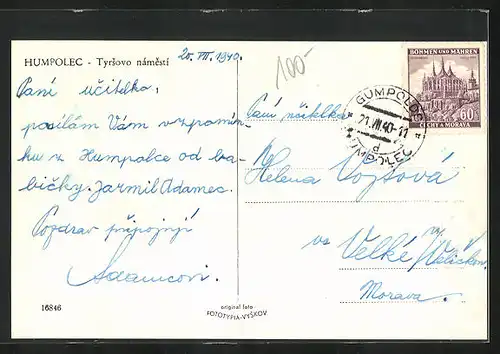 HUMPOLEC - Tyršovo náměstí
20. VII. 1940.
Paní učitelko,
posílám Vám vzpomín-
ku z Humpolce od ba-
bičky. Jarmil Adamec.
Pozdrav připojují
Adamcovi.
16846
original foto
FOTOTYPIA-VYŠKOV
100-
BÖHMEN UND MÄHREN
60
ČECHY A MORAVA
GUMPOLDS
21.VII.40-11
d
HUMPOLEC
Paní učitelka
Helena Vojtová
ve Velké n/Veličkou
Morava.